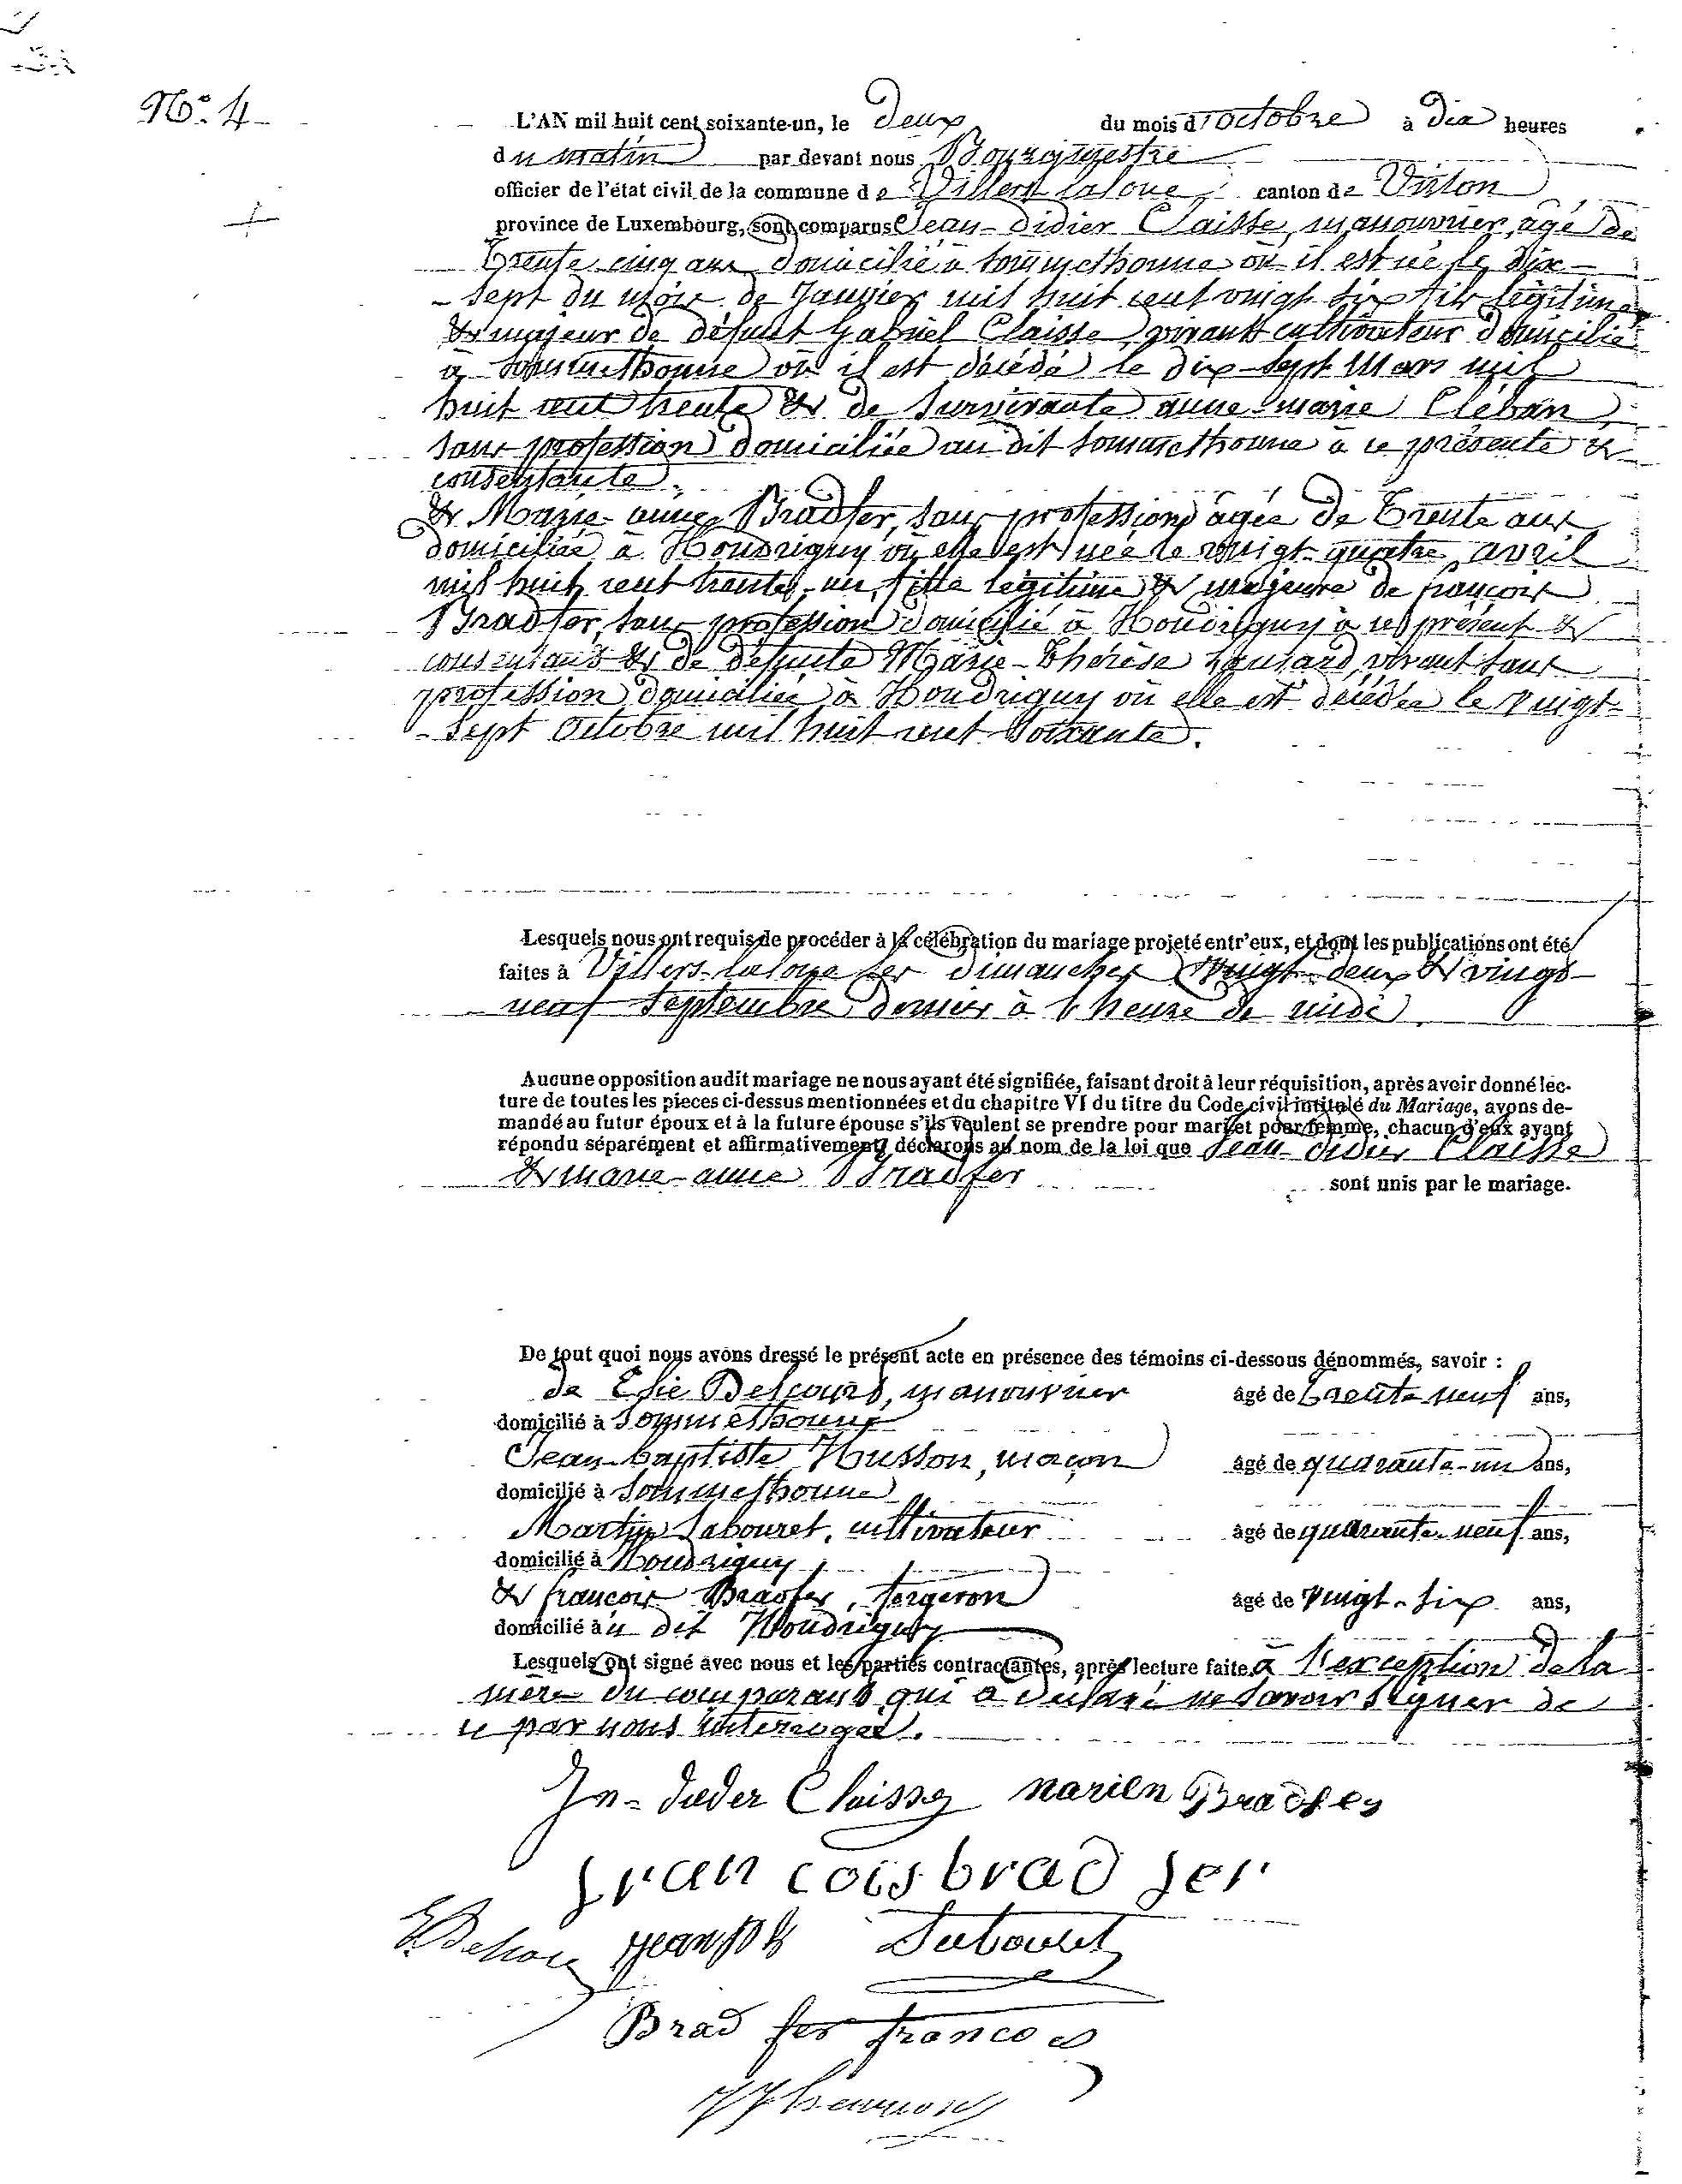 N° 4
L'AN mil huit cent soixante-un, le deux du mois d'octobre à dix heures
du matin par devant nous Bourgmestre
officier de l'état civil de la commune de Villers laloue canton de Virton
province de Luxembourg, sont comparus Jean-Didier Claisse, manouvrier, âgé de
Trente cinq ans domicilié à Sommethonne où il est né le dix-
-sept du mois de Janvier mil huit cent vingt six fils légitime
& majeur de défunt Gabriel Claisse vivant cultivateur domicilié
à Sommethonne où il est décédé le dix-sept Mars mil
huit cent trente & de survivante anne-marie Cléban,
sans profession domiciliée au dit Sommethonne à ce présente &
consentante.
& Marie-anne Bradfer, sans profession âgée de Trente ans
domiciliée à Houdrigny où elle est née le vingt-quatre avril
mil huit cent trente-un, fille légitime & majeure de françois
Bradfer, sans profession domicilié à Houdrigny à ce présent &
consentant & de défunte Marie-Thérèse vivant sans
profession domiciliée à Houdrigny où elle est décédée le vingt-
-sept Octobre mil huit cent soixante.
Lesquels nous ont requis de procéder à la célébration du mariage projeté entr'eux, et dont les publications ont été
faites à Villers-laloue les dimanches vingt-deux & vingt-
neuf septembre dernier à l'heure de midi
Aucune opposition audit mariage ne nous ayant été signifiée, faisant droit à leur réquisition, après avoir donné lec-
ture de toutes les pieces ci-dessus mentionnées et du chapitre VI du titre du Code civil intitulé du Mariage, avons de-
mandé au futur époux et à la future épouse s'ils veulent se prendre pour mari et pour femme, chacun d'eux ayant
répondu séparément et affirmativement, déclarons au nom de la loi que Jean-Didier Claisse
& marie-anne Bradfer sont unis par le mariage.
De tout quoi nous avons dressé le présent acte en présence des témoins ci-dessous dénommés, savoir :
de Elie Delcourt, manouvrier âgé de trente-neuf ans,
domicilié à Sommethonne
Jean-baptiste Husson, maçon âgé de quarante-un ans,
domicilié à Sommethonne
Martin Labouret, cultivateur âgé de quarante-neuf ans,
domicilié à Houdrigny
& françois Bradfer, forgeron âgé de vingt-six ans,
domicilié au dit Houdrigny
Lesquels ont signé avec nous et les parties contractantes, après lecture faite à l'exception de la
mère du comparant qui a déclaré ne savoir signer de
ce par nous interrogée.
Jn-Dieder Claisse marien Bradfer
francois bradfer
Labouret
Brad fer francois